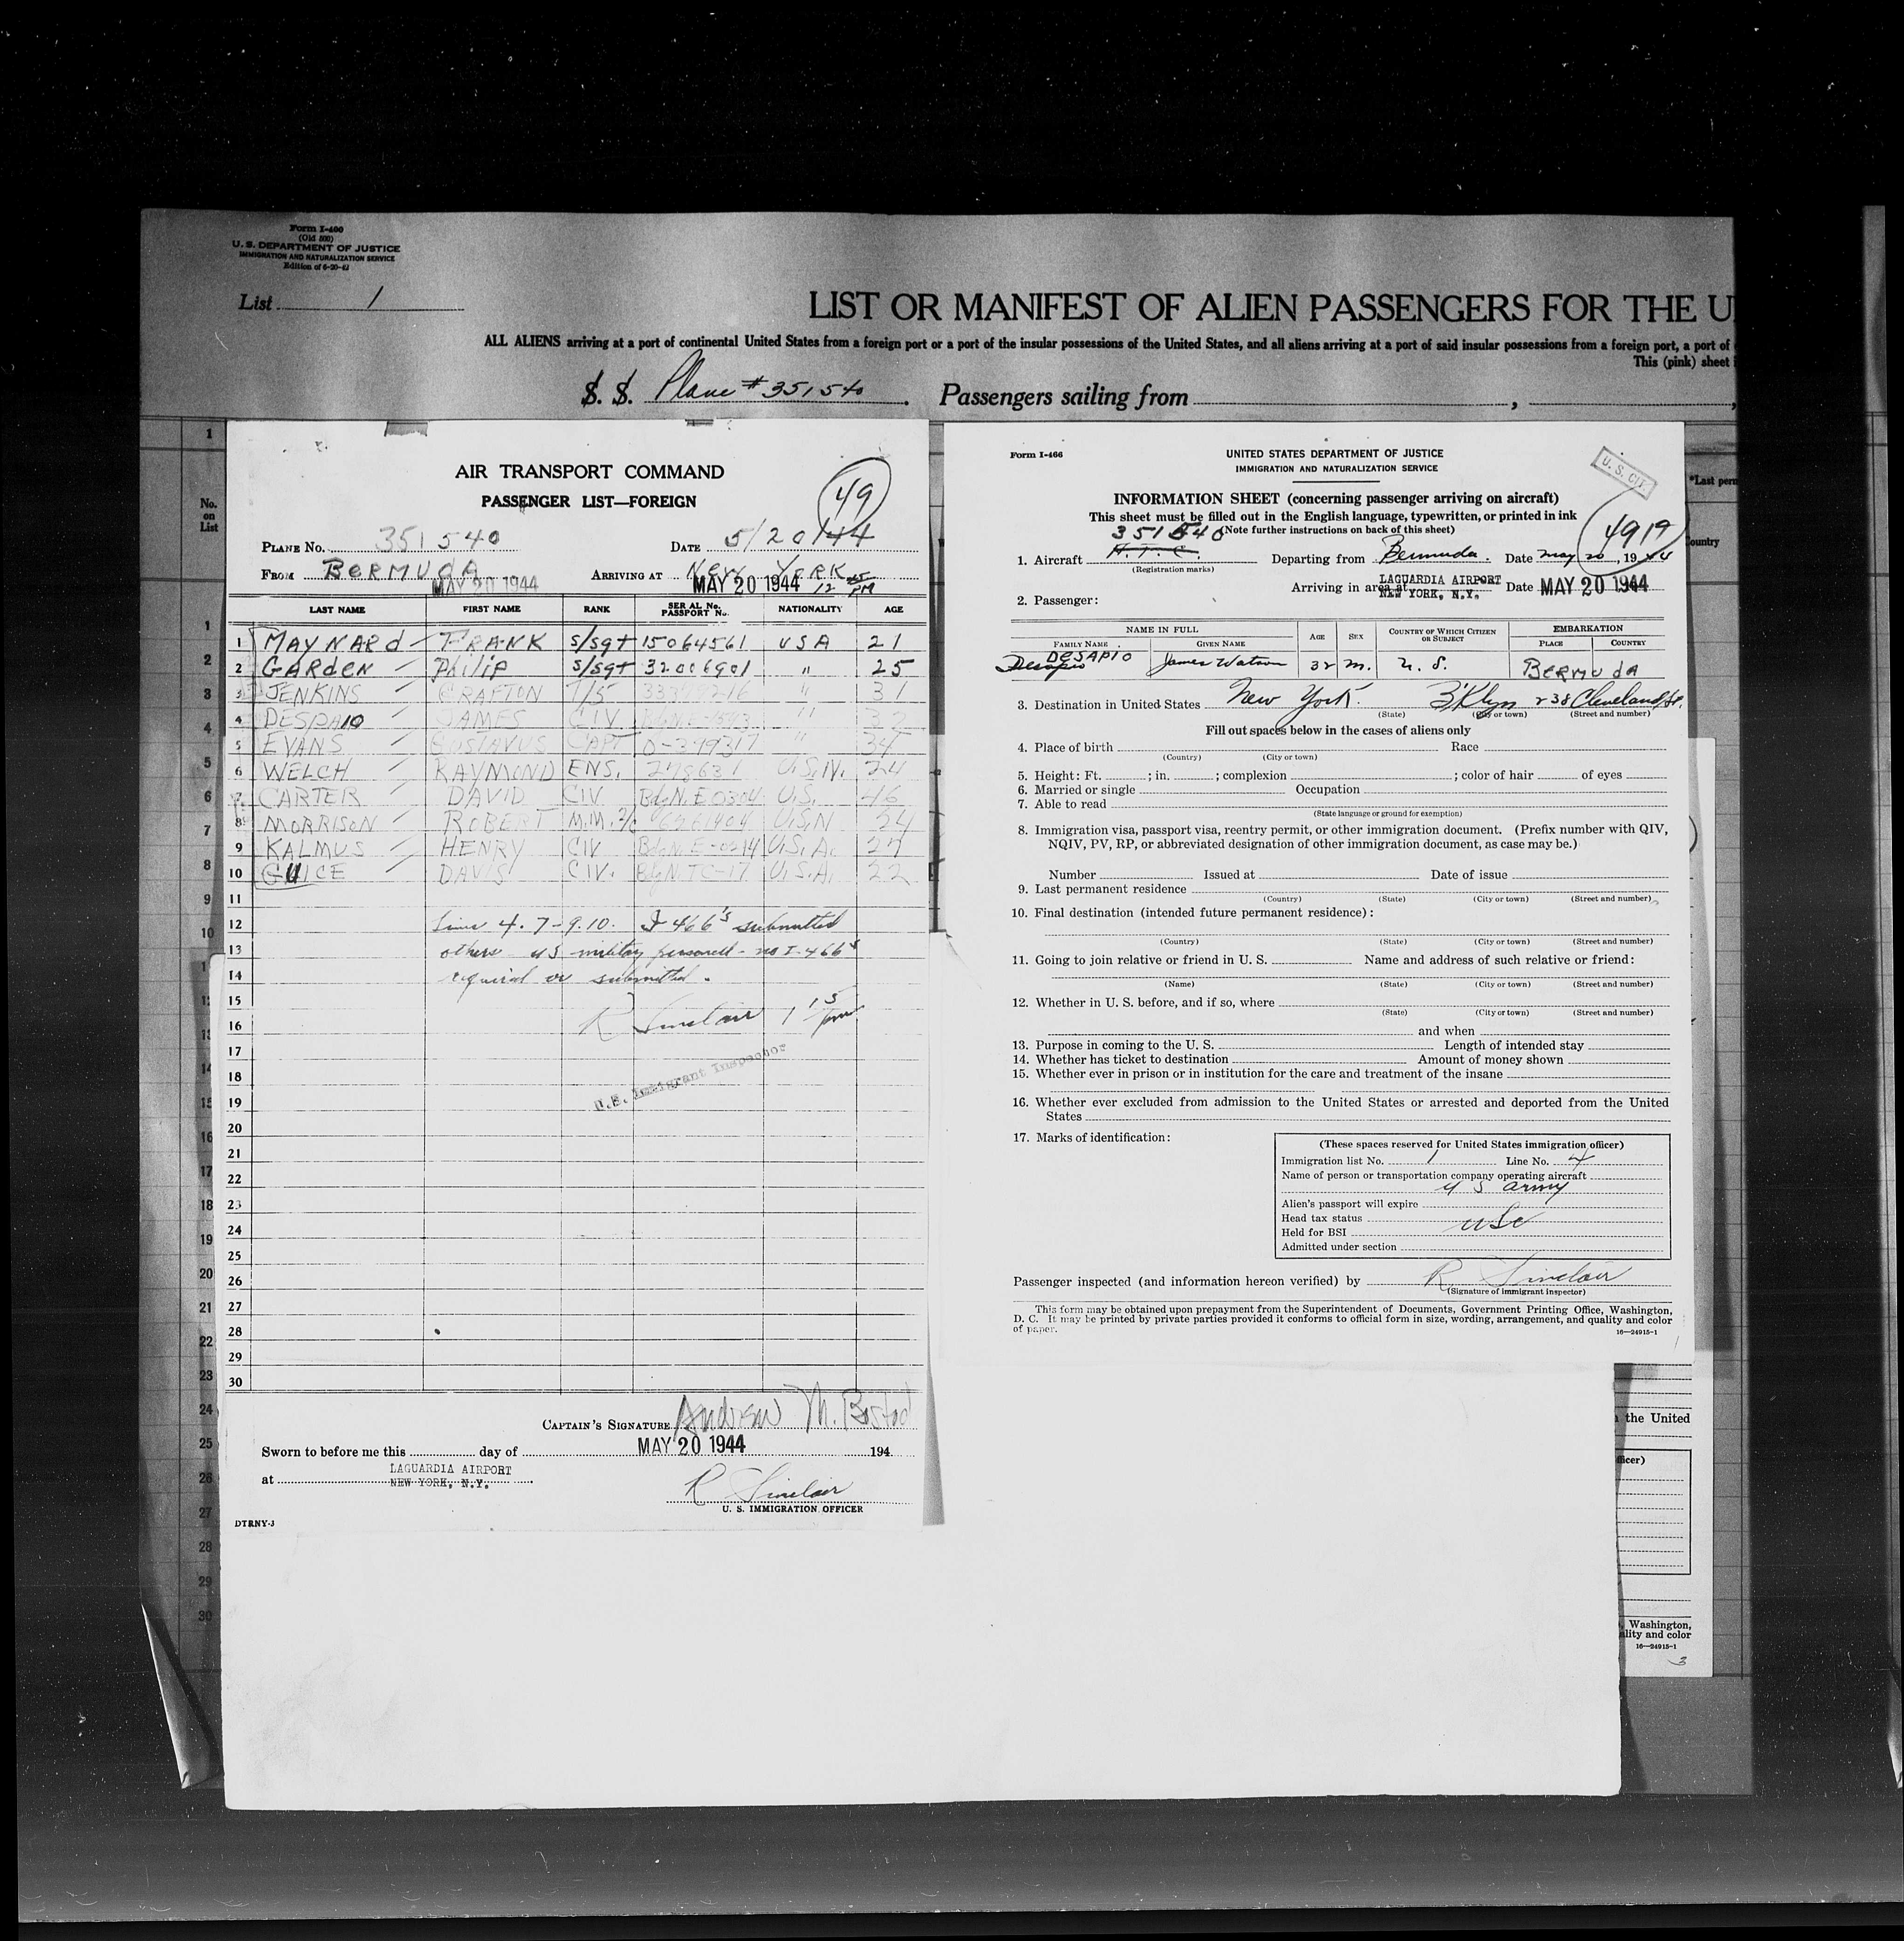 Form I-400
(Old 500)
U. S. DEPARTMENT OF JUSTICE
IMMIGRATION AND NATURALIZATION SERVICE
Edition of 6-20-42
List 1
LIST OR MANIFEST OF ALIEN PASSENGERS FOR THE U
ALL ALIENS arriving at a port of continental United States from a foreign port or a port of the insular possessions of the United States, and all aliens arriving at a port of said insular possessions from a foreign port, a port of
This (pink) sheet
S. S. Plane # 351540 Passengers sailing from
No. on List
AIR TRANSPORT COMMAND
PASSENGER LIST—FOREIGN
49
PLANE No. 351540 DATE 5/20/44
FROM BERMUDA ARRIVING AT NEW YORK
MAY 20 1944 MAY 20 1944 12 45 PM
LAST NAME FIRST NAME RANK SERIAL No. PASSPORT No. NATIONALITY AGE
1 MAYNARD FRANK S/Sgt 15064561 USA 21
2 GARDEN Philip S/Sgt 32006901 " 25
3 JENKINS GRAFTON T/5 " 31
4 DESPAIO JAMES CIV " 32
5 EVANS GUSTAVUS CAPT O-379317 " 34
6 WELCH RAYMOND ENS. 278631 U.S.N. 24
7 CARTER DAVID CIV Bdg.N.E 0304 U.S. 46
8 MORRISON ROBERT M.M. 2/c U.S.N 24
9 KALMUS HENRY CIV Bdg.N.E-0214 U.S.A. 27
10 GUICE DAVIS CIV. Bdg.N.TC-17 U.S.A. 22
11
12 Lines 4. 7-9.10. I 466's submitted
13 others US military personell - no I-466s
14 required or submitted.
15
16 R Sinclair 1 15 pm
17
U.S. Immigrant Inspector
18
19
20
21
22
23
24
25
26
27
28
29
30
CAPTAIN'S SIGNATURE Andrew M.
Sworn to before me this day of MAY 20 1944 194
at LAGUARDIA AIRPORT
NEW YORK, N.Y.
R Sinclair
U. S. IMMIGRATION OFFICER
DTRNY-3
Form I-466
UNITED STATES DEPARTMENT OF JUSTICE
IMMIGRATION AND NATURALIZATION SERVICE
U. S. CIT.
INFORMATION SHEET (concerning passenger arriving on aircraft)
This sheet must be filled out in the English language, typewritten, or printed in ink
(Note further instructions on back of this sheet)
351540
4919
1. Aircraft A.T.C. Departing from Bermuda. Date May 20, 1944
(Registration marks)
Arriving in area at LAGUARDIA AIRPORT NEW YORK, N.Y. Date MAY 20 1944
2. Passenger:
NAME IN FULL AGE SEX COUNTRY OF WHICH CITIZEN OR SUBJECT EMBARKATION
FAMILY NAME GIVEN NAME PLACE COUNTRY
DESAPIO
Desapio James Watson 32 M. U. S. BERMUDA
3. Destination in United States New York. B'Klyn 238 Cleveland St.
(State) (City or town) (Street and number)
Fill out spaces below in the cases of aliens only
4. Place of birth Race
(Country) (City or town)
5. Height: Ft. ; in. ; complexion ; color of hair of eyes
6. Married or single Occupation
7. Able to read
(State language or ground for exemption)
8. Immigration visa, passport visa, reentry permit, or other immigration document. (Prefix number with QIV,
NQIV, PV, RP, or abbreviated designation of other immigration document, as case may be.)
Number Issued at Date of issue
9. Last permanent residence
(Country) (State) (City or town) (Street and number)
10. Final destination (intended future permanent residence):
(Country) (State) (City or town) (Street and number)
11. Going to join relative or friend in U. S. Name and address of such relative or friend:
(Name) (State) (City or town) (Street and number)
12. Whether in U. S. before, and if so, where
(State) (City or town) (Street and number)
and when
13. Purpose in coming to the U. S. Length of intended stay
14. Whether has ticket to destination Amount of money shown
15. Whether ever in prison or in institution for the care and treatment of the insane
16. Whether ever excluded from admission to the United States or arrested and deported from the United
States
17. Marks of identification:
(These spaces reserved for United States immigration officer)
Immigration list No. 1 Line No. 4
Name of person or transportation company operating aircraft
U S Army
Alien's passport will expire
Head tax status USC
Held for BSI
Admitted under section
Passenger inspected (and information hereon verified) by R. Sinclair
(Signature of immigrant inspector)
This form may be obtained upon prepayment from the Superintendent of Documents, Government Printing Office, Washington,
D. C. It may be printed by private parties provided it conforms to official form in size, wording, arrangement, and quality and color
of paper.
16—24915-1
*Last perm
Country
the United
ficer)
Washington,
lity and color
16—24915-1
3